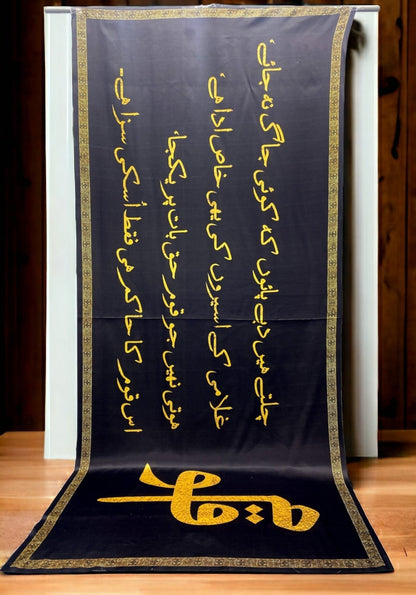 قوم
چلتے ہیں دبے پائوں کہ کوئی جاگ نہ جائے،
غلامی کے اسیروں کی یہی خاص ادا ہے،
ہوتی نہیں جو قوم حق بات پر یکجا،
اس قوم کا حاکم ہی فقط اُسکی سزا ہے۔